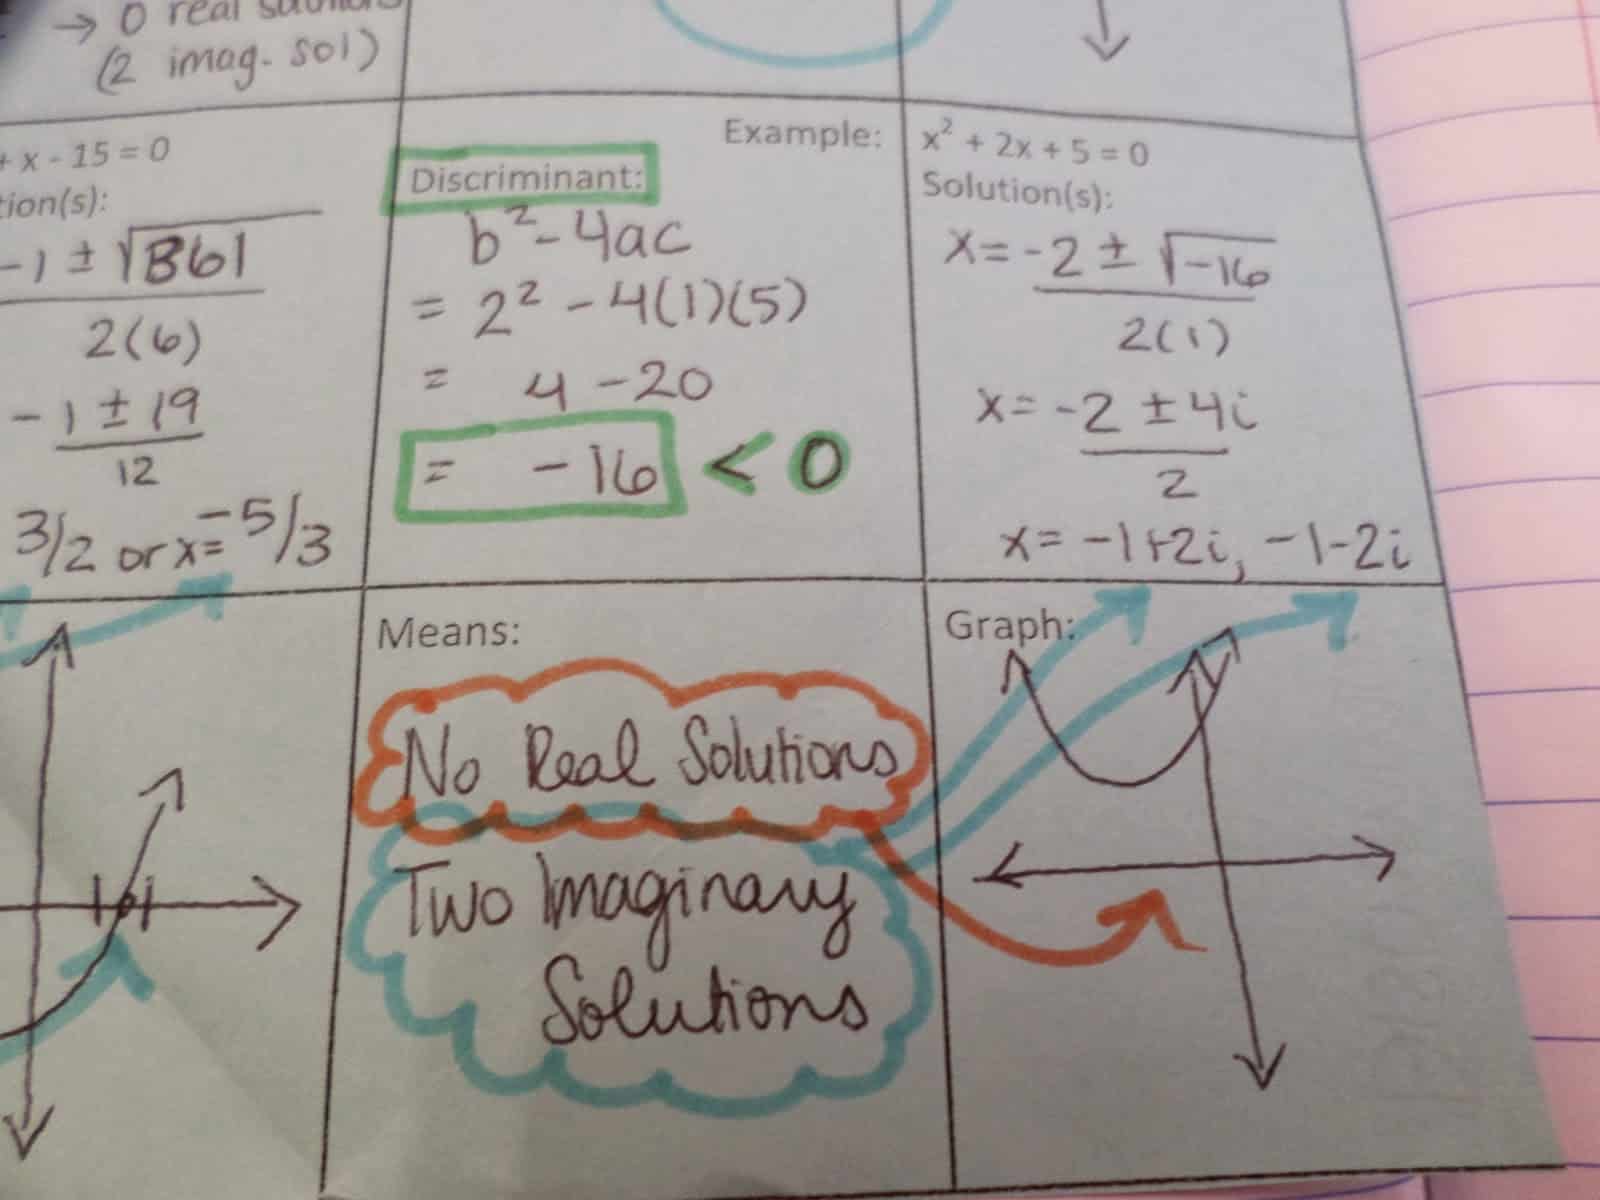 → 0 real solutions
(2 imag. sol)
+ x - 15 = 0
tion(s):
-1 ± √361
2(6)
-1 ± 19
12
3/2 or x = -5/3
Example:
Discriminant:
b² - 4ac
= 2² - 4(1)(5)
= 4 - 20
= -16 < 0
x² + 2x + 5 = 0
Solution(s):
x = -2 ± √-16
2(1)
x = -2 ± 4i
2
x = -1+2i, -1-2i
Means:
No Real Solutions
Two Imaginary
Solutions
Graph: